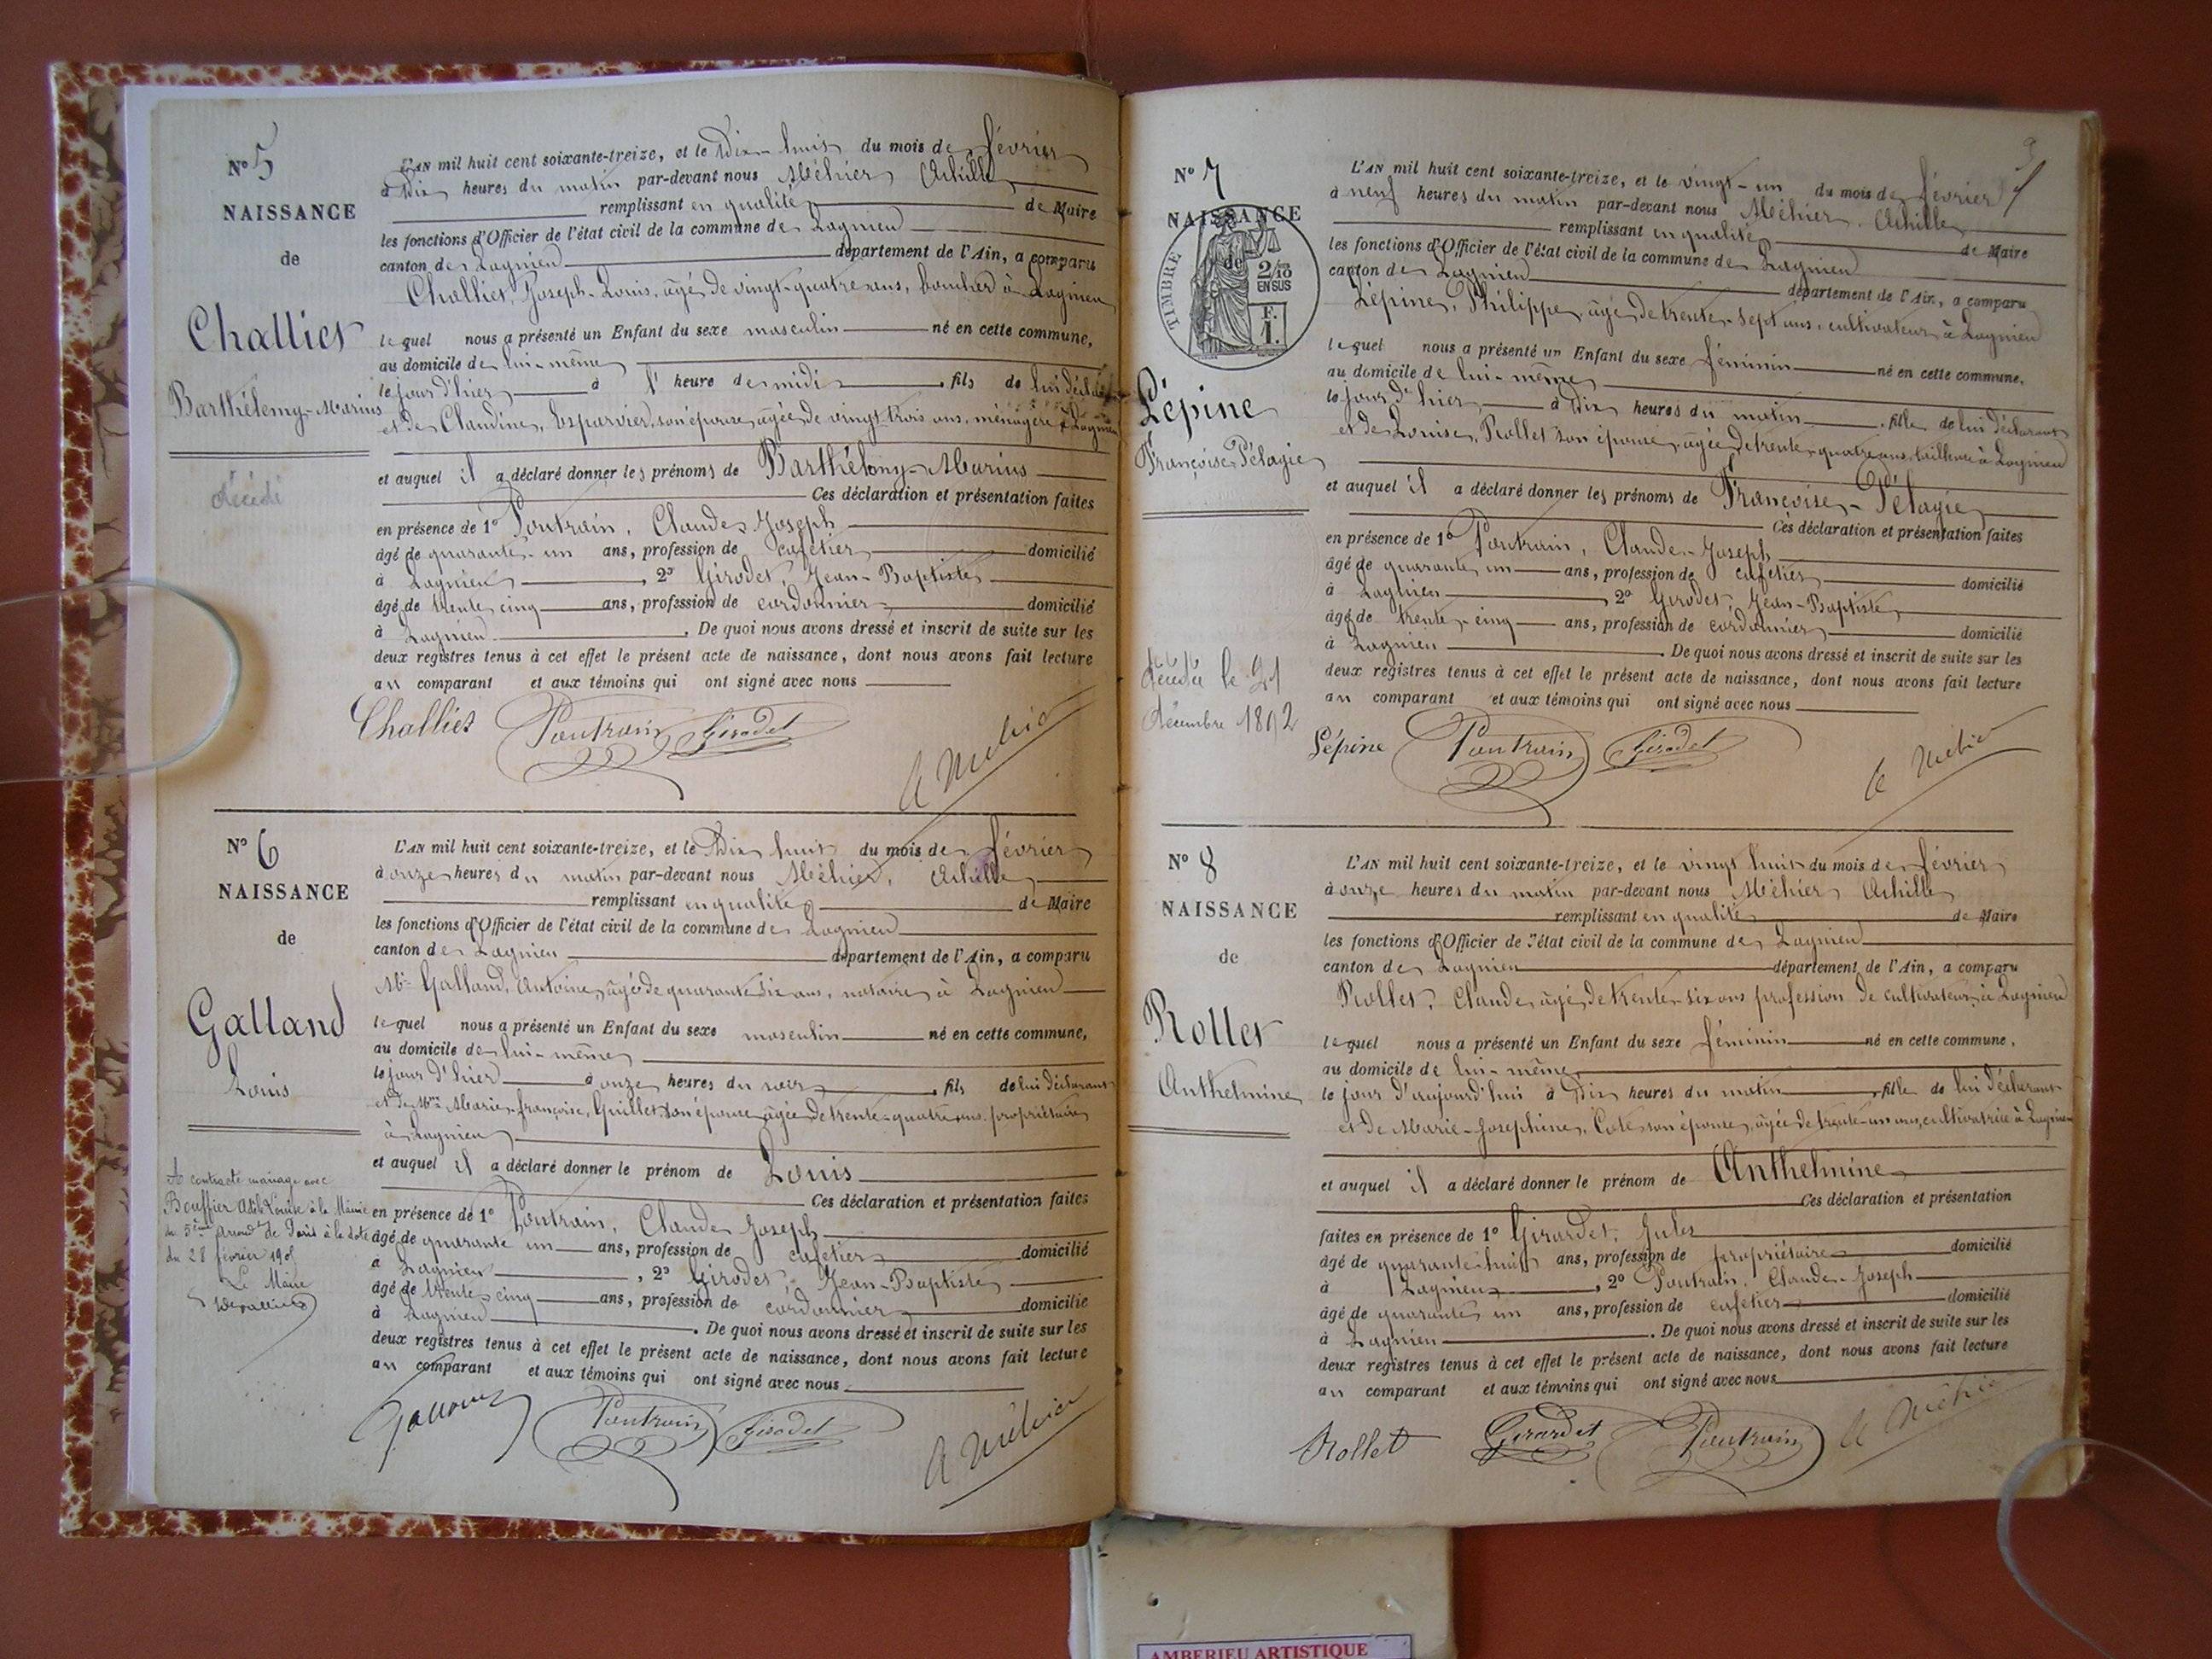 N° 5
NAISSANCE
de
Challier
Barthélemy-Marius
décédé
L'AN mil huit cent soixante-treize, et le Dix-huit du mois de février
à Dix heures du matin par-devant nous Méhier Achille
remplissant en qualité de Maire
les fonctions d'Officier de l'état civil de la commune de Lagnieu
canton de Lagnieu département de l'Ain, a comparu
Challier, Joseph-Louis, âgé de vingt-quatre ans, boucher à Lagnieu
lequel nous a présenté un Enfant du sexe masculin né en cette commune,
au domicile de lui-même
le jour d'hier à l' heure de midi fils de lui déclarant
et de Claudine, Esparvier, son épouse, âgée de vingt-trois ans, ménagère à Lagnieu
et auquel il a déclaré donner les prénoms de Barthélemy-Marius
Ces déclaration et présentation faites
en présence de 1° Poutrain, Claude Joseph
âgé de quarante-un ans, profession de cafetier domicilié
à Lagnieu, 2° Girodet, Jean-Baptiste
âgé de trente cinq ans, profession de cordonnier domicilié
à Lagnieu. De quoi nous avons dressé et inscrit de suite sur les
deux registres tenus à cet effet le présent acte de naissance, dont nous avons fait lecture
au comparant et aux témoins qui ont signé avec nous
Challier Poutrain Girodet A Méhier
N° 6
NAISSANCE
de
Galland
Louis
A contracté mariage avec
Bouffier Adèle Louise à la Mairie
du 5ème arrondt de Paris à la date
du 28 février 190
Le Maire
L'AN mil huit cent soixante-treize, et le Dix huit du mois de février
à onze heures du matin par-devant nous Méhier, Achille
remplissant en qualité de Maire
les fonctions d'Officier de l'état civil de la commune de Lagnieu
canton de Lagnieu département de l'Ain, a comparu
Mr Galland, Antoine, âgé de quarante six ans, notaire à Lagnieu
lequel nous a présenté un Enfant du sexe masculin né en cette commune,
au domicile de lui-même
le jour d'hier à onze heures du soir fils de lui déclarant
et de Mme Marie-françoise, Guillet son épouse, âgée de trente-quatre ans, propriétaire
à Lagnieu
et auquel il a déclaré donner le prénom de Louis
Ces déclaration et présentation faites
en présence de 1° Poutrain, Claude Joseph
âgé de quarante un ans, profession de cafetier domicilié
à Lagnieu, 2° Girodet, Jean-Baptiste
âgé de trente cinq ans, profession de cordonnier domicilié
à Lagnieu. De quoi nous avons dressé et inscrit de suite sur les
deux registres tenus à cet effet le présent acte de naissance, dont nous avons fait lecture
au comparant et aux témoins qui ont signé avec nous
Galland Poutrain Girodet A Méhier
3
N° 7
NAISSANCE
de
TIMBRE
2/10
EN SUS
F.
1.
Lépine
Françoise-Pélagie
Décédée le 21
Décembre 1892
L'AN mil huit cent soixante-treize, et le vingt-un du mois de février
à neuf heures du matin par-devant nous Méhier Achille
remplissant en qualité de Maire
les fonctions d'Officier de l'état civil de la commune de Lagnieu
canton de Lagnieu département de l'Ain, a comparu
Lépine, Philippe, âgé de trente-sept ans, cultivateur à Lagnieu
lequel nous a présenté un Enfant du sexe féminin né en cette commune,
au domicile de lui-même
le jour d'hier à Dix heures du matin fille de lui déclarant
et de Louise, Rollet son épouse, âgée de trente-quatre ans, tailleuse à Lagnieu
et auquel il a déclaré donner les prénoms de Françoise-Pélagie
Ces déclaration et présentation faites
en présence de 1° Poutrain, Claude-Joseph
âgé de quarante un ans, profession de cafetier domicilié
à Lagnieu, 2° Girodet, Jean-Baptiste
âgé de trente-cinq ans, profession de cordonnier domicilié
à Lagnieu. De quoi nous avons dressé et inscrit de suite sur les
deux registres tenus à cet effet le présent acte de naissance, dont nous avons fait lecture
au comparant et aux témoins qui ont signé avec nous
Lépine Poutrain Girodet A Méhier
N° 8
NAISSANCE
de
Rollet
Anthelmine
L'AN mil huit cent soixante-treize, et le vingt huit du mois de février
à onze heures du matin par-devant nous Méhier Achille
remplissant en qualité de Maire
les fonctions d'Officier de l'état civil de la commune de Lagnieu
canton de Lagnieu département de l'Ain, a comparu
Rollet, Claude, âgé de trente-six ans profession de cultivateur à Lagnieu
lequel nous a présenté un Enfant du sexe féminin né en cette commune,
au domicile de lui-même
le jour d'aujourd'hui à Dix heures du matin fille de lui déclarant
et de Marie-Josephine, Cote son épouse, âgée de trente-un ans, cultivatrice à Lagnieu
et auquel il a déclaré donner le prénom de Anthelmine
Ces déclaration et présentation
faites en présence de 1° Girardet, Jules
âgé de quarante-huit ans, profession de propriétaire domicilié
à Lagnieu, 2° Poutrain, Claude-Joseph
âgé de quarante un ans, profession de cafetier domicilié
à Lagnieu. De quoi nous avons dressé et inscrit de suite sur les
deux registres tenus à cet effet le présent acte de naissance, dont nous avons fait lecture
au comparant et aux témoins qui ont signé avec nous
Rollet Girardet Poutrain A Méhier
AMBERIEU ARTISTIQUE